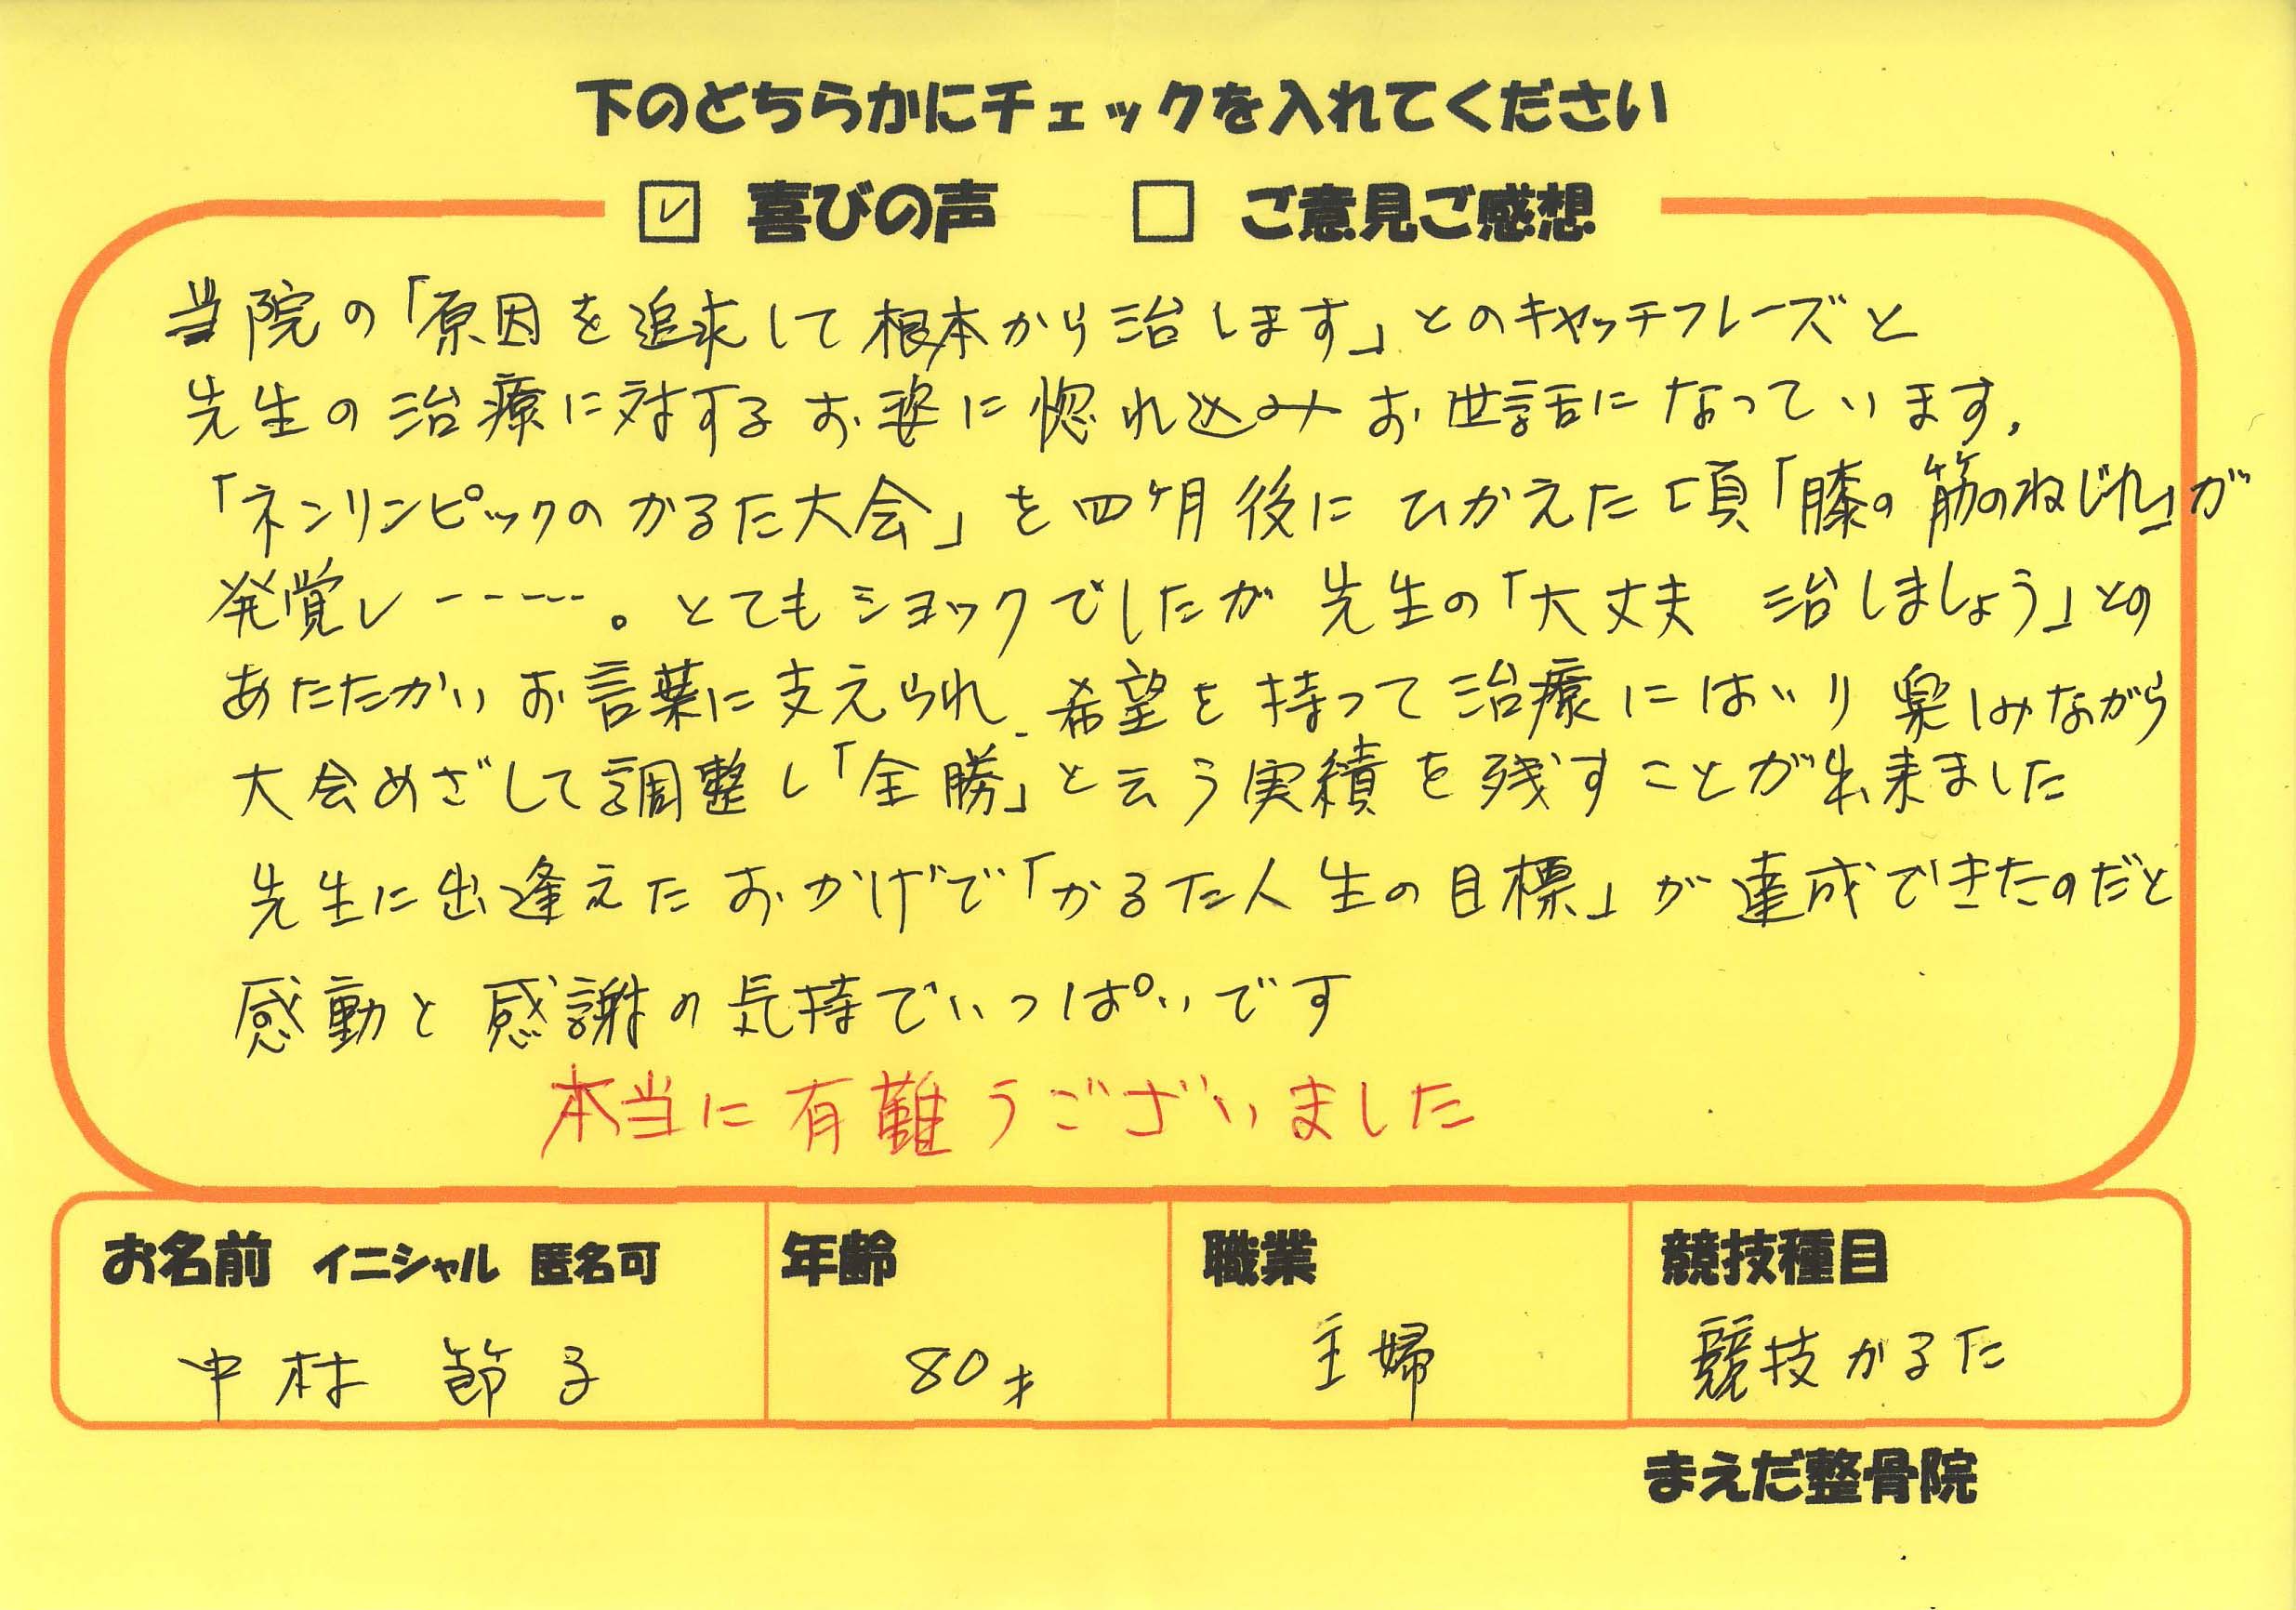 下のどちらかにチェックを入れてください
☑ 喜びの声 □ ご意見ご感想
当院の「原因を追求して根本から治します」とのキャッチフレーズと
先生の治療に対するお姿に惚れ込みお世話になっています。
「ネンリンピックのかるた大会」を四ヶ月後にひかえた頃「膝の筋のねじれ」が
発覚し-----。とてもショックでしたが先生の「大丈夫 治しましょう」との
あたたかいお言葉に支えられ、希望を持って治療にはいり楽しみながら
大会めざして調整し「全勝」と云う実績を残すことが出来ました
先生に出逢えたおかげで「かるた人生の目標」が達成できたのだと
感動と感謝の気持でいっぱいです
本当に有難うございました
お名前 イニシャル 匿名可 年齢 職業 競技種目
中村 節子 80才 主婦 競技かるた
まえだ整骨院